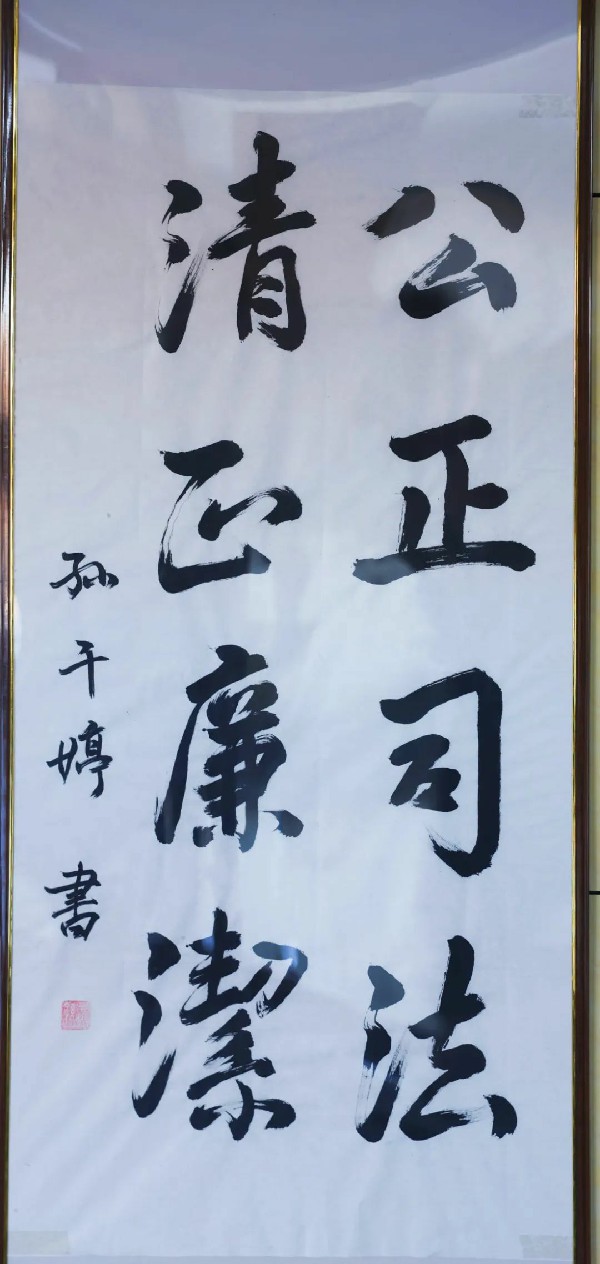 公正司法
清正廉潔
孙千婷 書